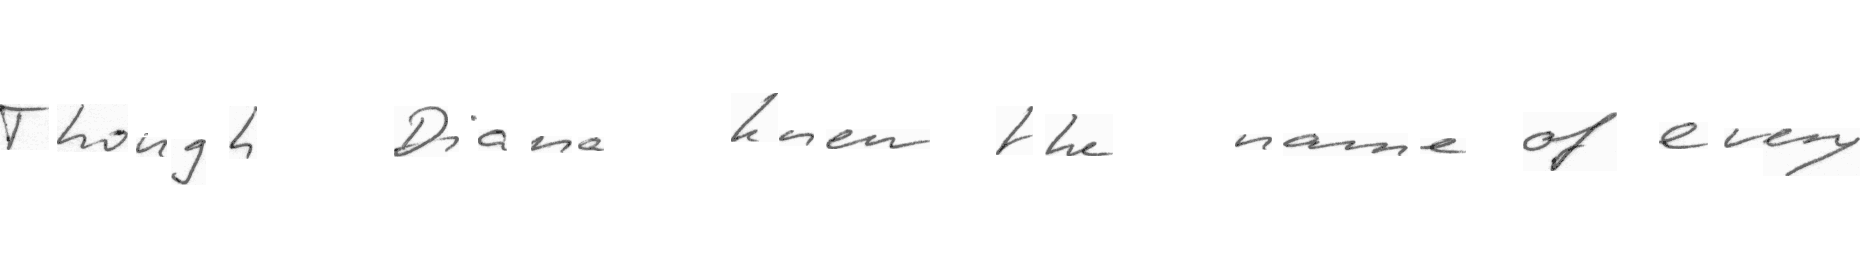 Though Diana knew the name of every